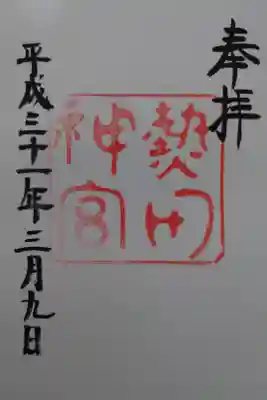 奉拝
熱田
神宮
平成三十一年三月九日